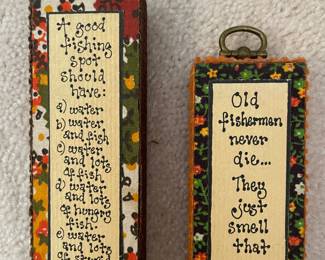 A good
fishing
spot
should
have:
a) water
b) water
and fish
c) water
and lots
of fish.
d) water
and lots
of hungry
fish.
e) water
and lots
Old
fishermen
never
die...
They
just
smell that